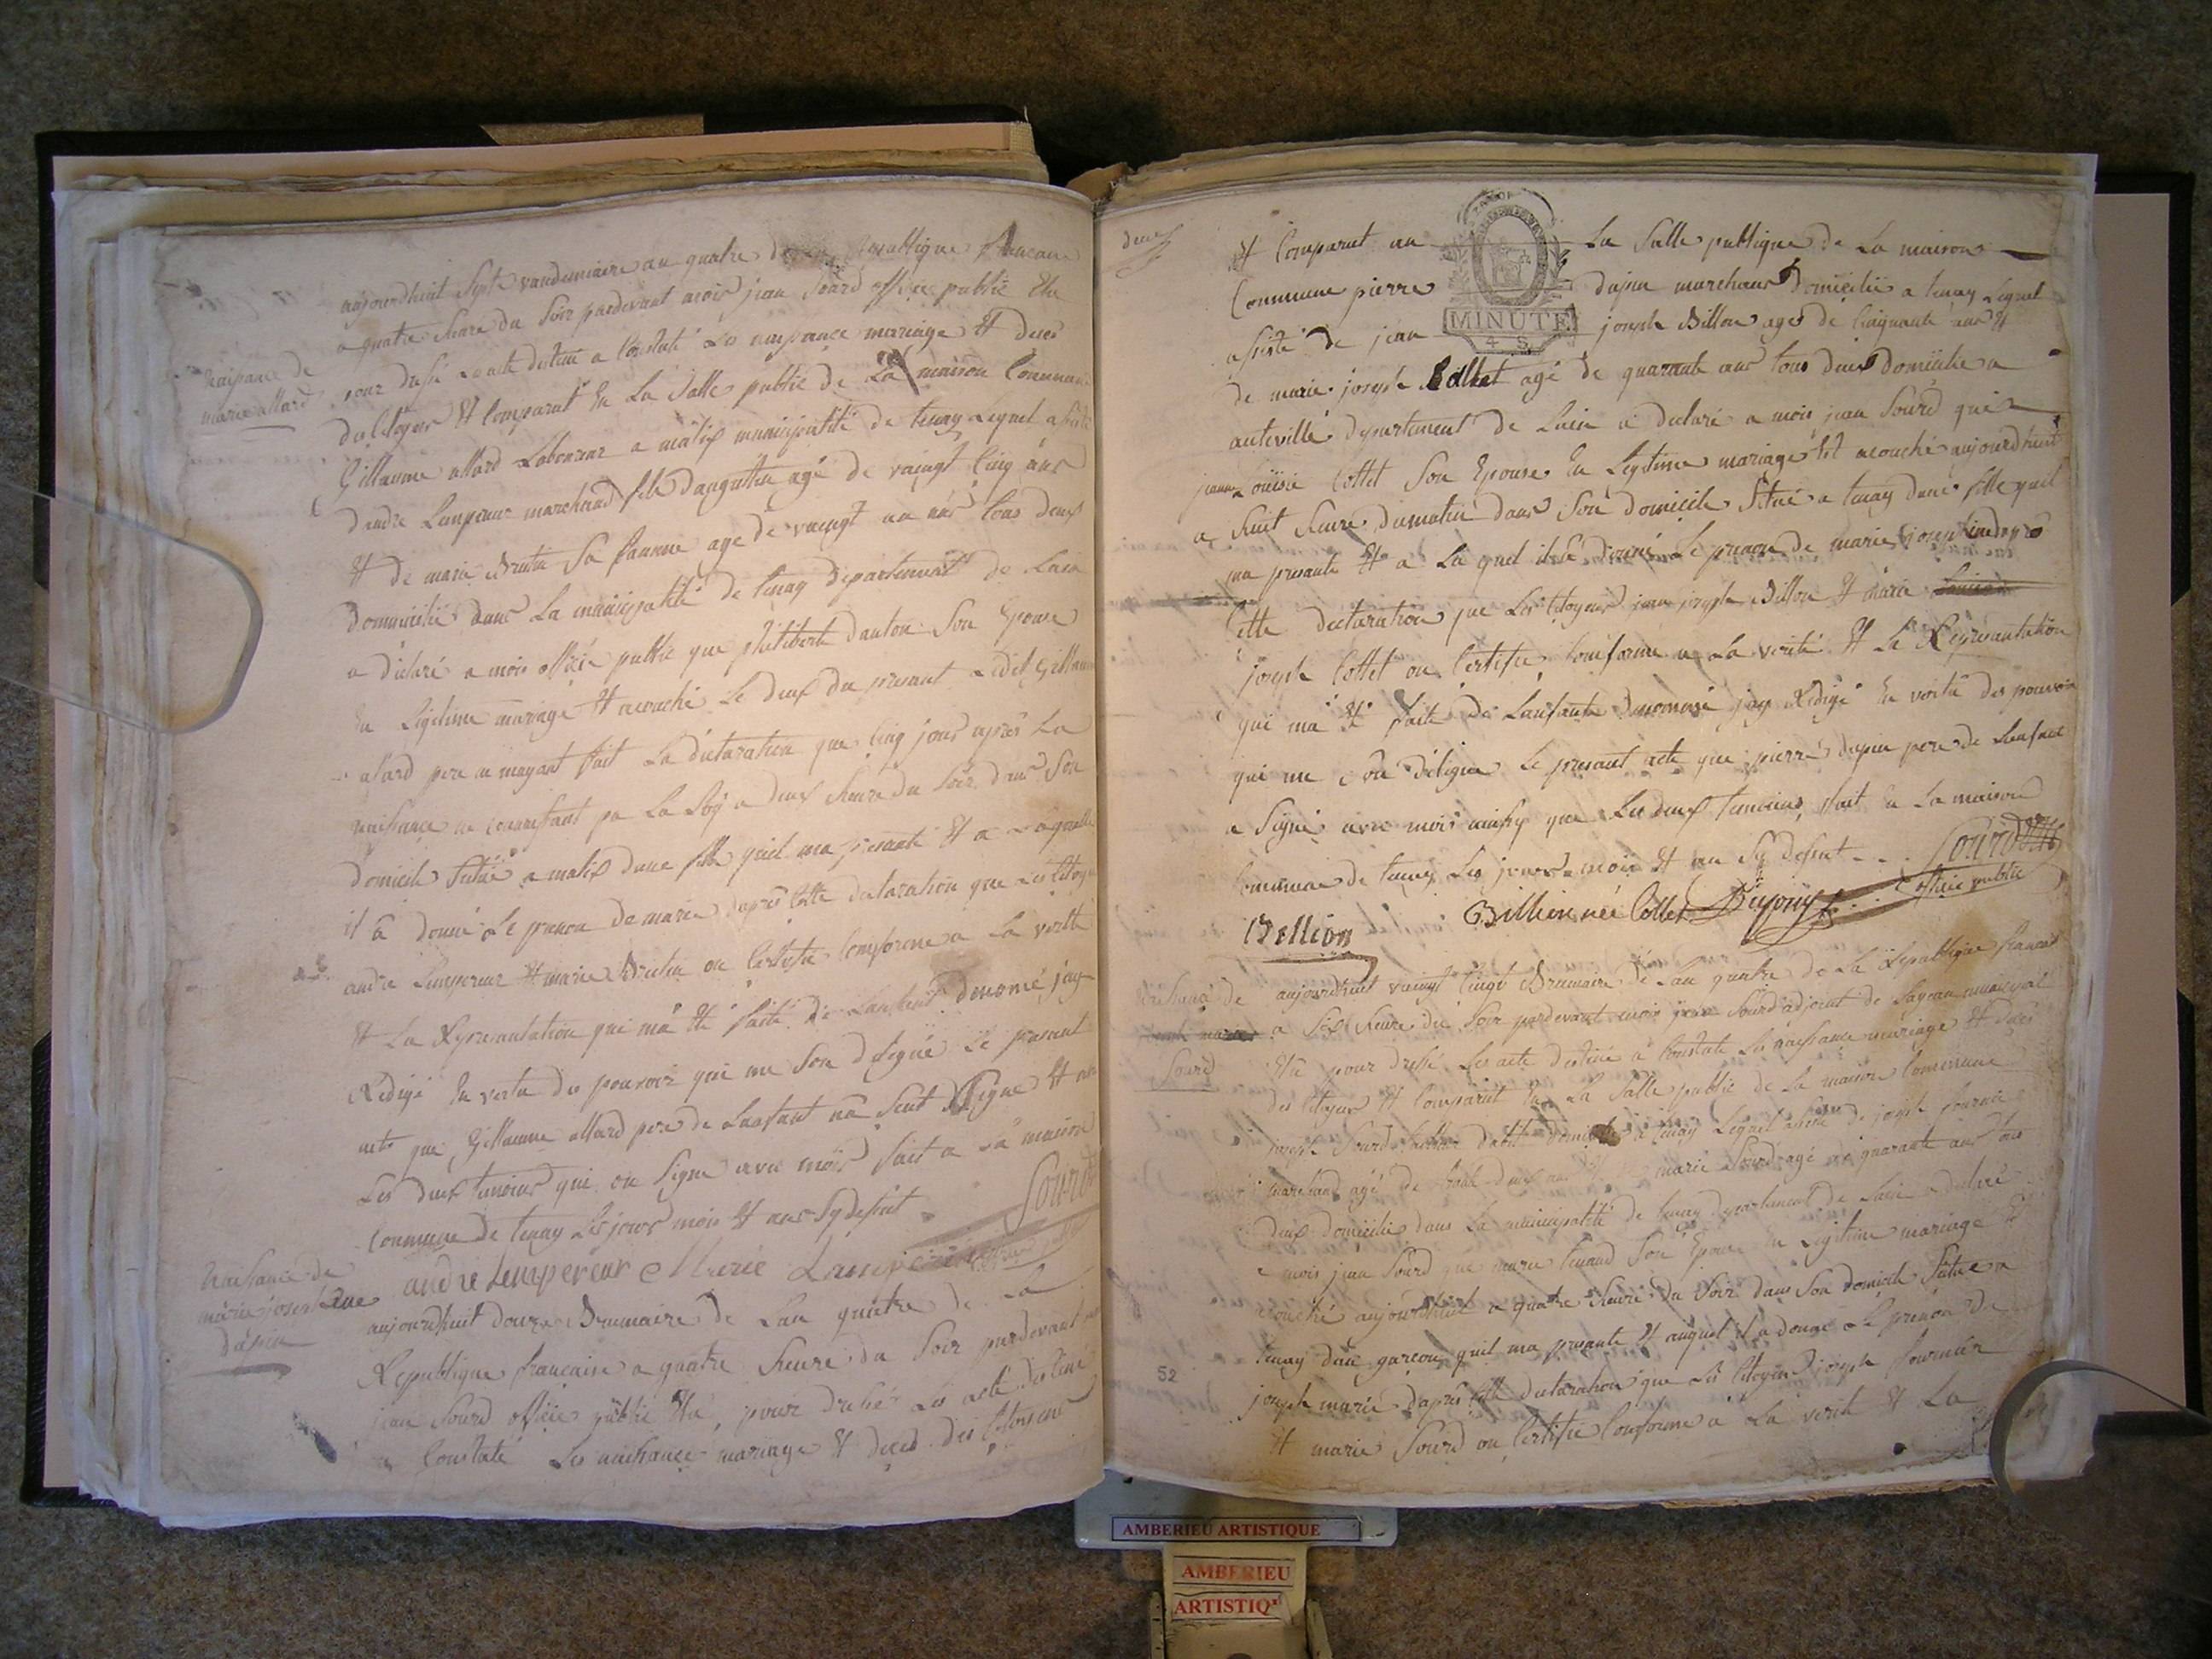 naissance de
marie allard
aujourdhuit sept vandemiaire an quatre de la Republique francaise
a quatre heure du soir pardevant mois jean Sourd officie public Elu
pour dressé acte destiné a Constaté Les naissance mariage Et deces
des Citoyens Et Comparut En La Salle public de La maison Commune
Gillaume allard Laboureur a malix municipalité de tenay Lequel assisté
dandre Lempereur marchand fils daugustin agé de vaingt Cinq ans
Et de marie Brutin Sa famme age de vaingt un ans tous deux
domicilié dans La municipalité de tenay departement de Lain
a déclaré a mois officie public que philiberte danton Son Epouse
En Legitime mariage Et acouché Le deux du presant Ledit Gillaume
alard pere ne mayant fait La declaration que Cinq jours apres La
naissance ne connaissant pa La Loÿ a deux heure du Soir dans Son
domicile Situé a malix dune fille quil ma presanté Et a Laquelle
il a donné Le prenon de marie dapres Cette declaration que Les Citoyens
andre Lempereur Et marie Brutin on Certifie Comforme a La verité
Et La Represantation qui má Eté faite de Lanfant denomé jay
Redigé En vertu des pouvoir qui me Son delegué Le presant
acte que Gillaume allard pere de Lanfant na Seut Signe Et
Les deux temoins qui on Signe avec mois fait a La maison
Commune de tenay Les jours mois Et ans Sy desut
Sourd
andre Lempereur Marie
naissance de
marie josephine
dupin
aujourdhuit douze Brumaire de Lan quatre de La
Republique francaise a quatre heure du Soir pardevant
jean Sourd officie public Elu, pour dresse Les acte destiné
a Constaté Les naissance mariage Et deces des Citoyens
deux
Et Comparut an La Salle publique de La maison
MINUTE
4 S.
Commune pierre dupin marchand domicilié a tenay Lequel
assisté de jean joseph Billon agé de Cinquante ans Et
de marie joseph Collet agé de quarante ans tous deux domicilie a
auteville departement de Lain a declaré a mois jean Sourd que
jeanne Louise Collet Son Epouse En Legitime mariage Et acouché aujourdhuit
a huit heure dumatin dans Son domicile Situé a tenay dune fille quil
ma presanté Et a La quel il a donné Le prenon de marie josephine dapres
Cette declaration que Les Citoyens jean joseph Billon Et marie
joseph Collet on Certifie Comforme a La verité Et La Represantation
qui má Eté faite de Lanfante denommé jay Redigé En vertu des pouvoir
qui me Son délégué Le presant acte que pierre dupin pere de Lanfant
a Signé avec mois ainsy que Les deux temoins, fait En La maison
Commune de tenay Les jours mois Et an Sy desut
Sourd
officie public
Billion Billion née Collet
naissance de
Sourd
aujourdhuit vaingt Cinqt Brumaire de Lan quatre de La Republique francaise
a Sept heure du Soir pardevant mois jean Sourd adjoint de Lagean municipal
Elu pour dressé Les acte destiné a Constate Les naissance mariage Et deces
des Citoyens Et Comparut En La Salle public de La maison Commune
joseph Sourd tailleur dabit domicilié a tenay Lequel assisté de joseph fournier
marchand agé de trante deux ans Et marie Sourd agé de quarante ans tous
deux domicilié dans La municipalité de tenay departement de Lain a declaré
a mois jean Sourd que marie tenand Son Epouse En Legitime mariage Et
acouché aujourdhuit a quatre heure du Soir dans Son domicile Situé a
tenay dun garcon quil ma presanté Et auquel il a donné Le prenon de
52
joseph marie dapres Cette declaration que Les Citoyens joseph fournier
Et marie Sourd on Certifie Comforme a La verité Et La
AMBERIEU ARTISTIQUE
AMBERIEU
ARTISTIQ